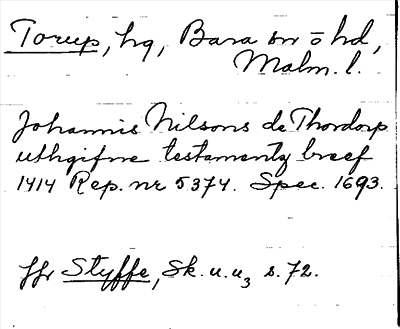 Torup, hg, Bara sn o hd,
Malm. l.
Johannis Nilsons de Thordorp
uthgifne testamentz breef
1414 Rep. nr 5374. Spec. 1693.
jfr Styffe, Sk. u. u3 s. 72.